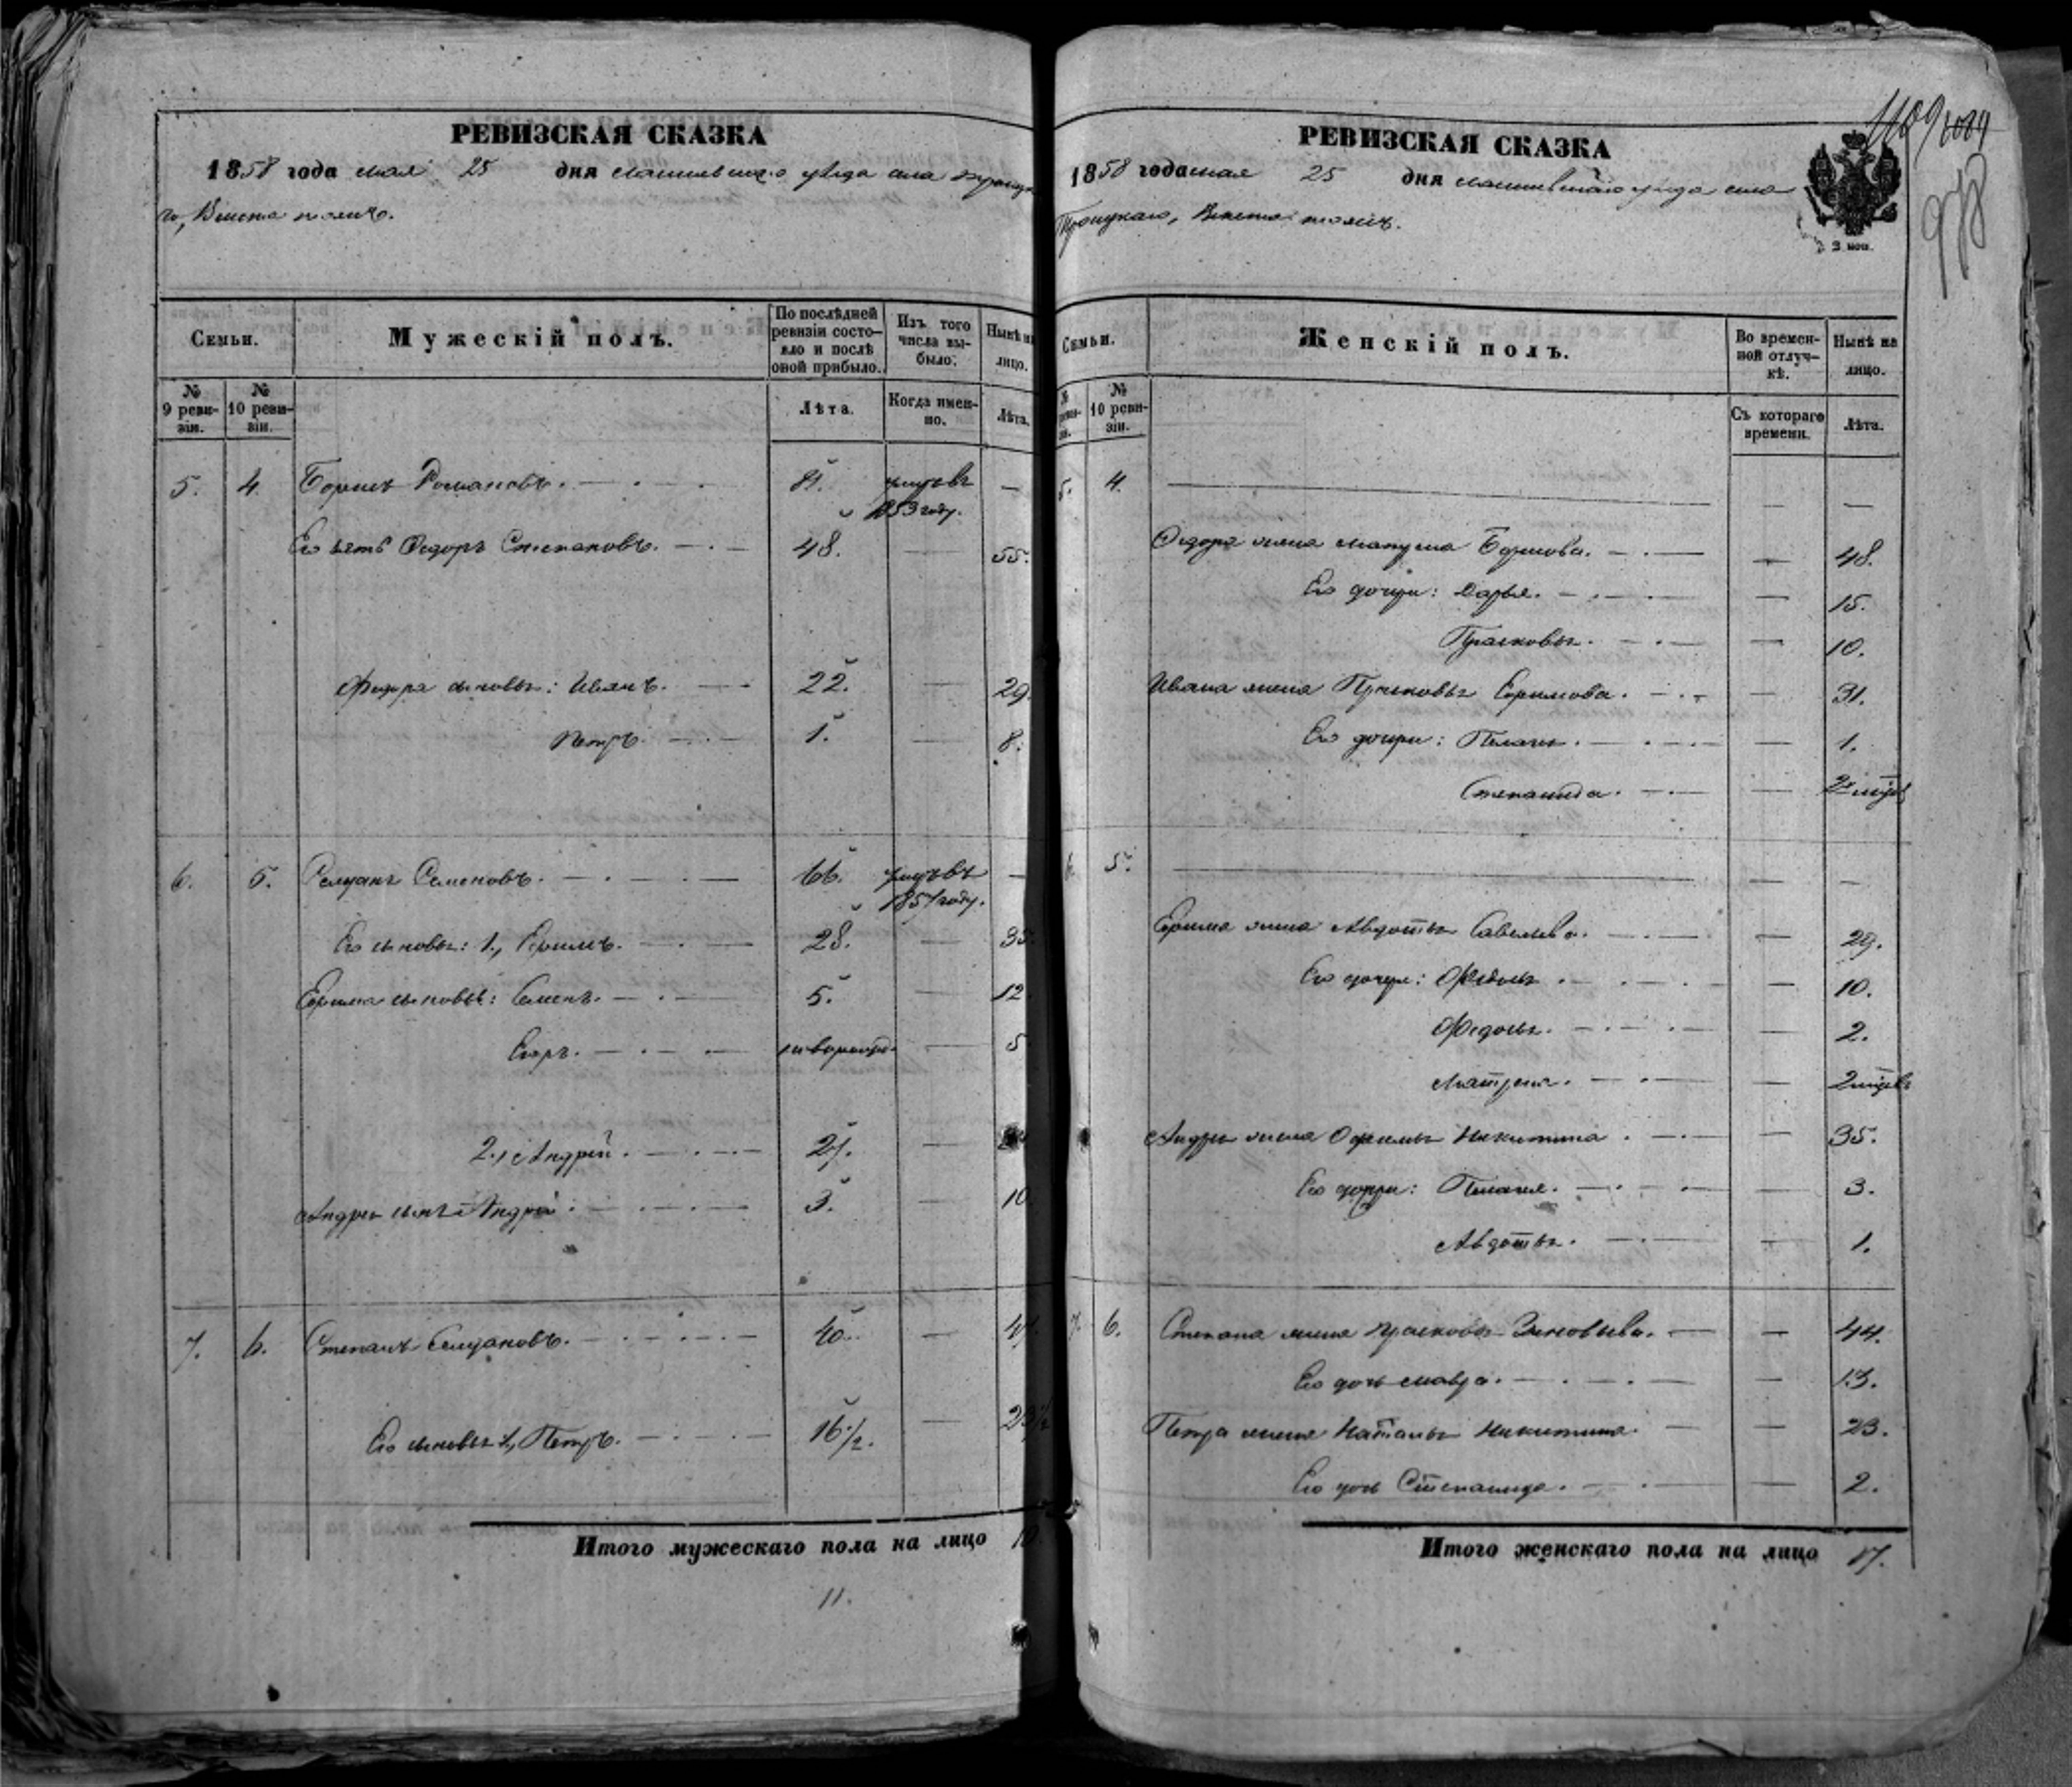 РЕВИЗСКАЯ СКАЗКА
1858 года мая 25 дня Лаишевскаго уѣзда села Троицка
го,
Семьи.
Мужескій полъ.
По послѣдней ревизіи состо-
яло и послѣ
оной прибыло.
Изъ того
числа вы-
было.
Нынѣ на
лицо.
№
9 реви-
зіи.
№
10 реви-
зіи.
Лѣта.
Когда имен-
но.
Лѣта.
5. 4. Борисъ Романовъ. 81. умеръ въ —
1853 году.
Его зять Ѳедоръ Степановъ. 48. — 55.
Ѳедора сыновья: Иванъ. 22. — 29.
Петръ. 1. — 8.
6. 5. Семеновъ. 66. умеръ въ —
1857 году.
Его сыновья: 1., Ефимъ. 28. — 35
Ефима сыновья: Семенъ. 5. — 12
Егоръ. новорожд. — 5
2., Андрей. 27. —
Андрея сынъ Андрей. 3. — 10
7. 6. Степанъ 40. — 47.
Его сыновья 1, Петръ. 16 1/2. — 23 1/2
Итого мужескаго пола на лицо 10.
11.
РЕВИЗСКАЯ СКАЗКА
1858 года мая 25 дня Лаишевскаго уѣзда села
Троицкаго,
3 коп.
978
Семьи.
Женскій полъ.
Во времен-
ной отлуч-
кѣ.
Нынѣ на
лицо.
№
10 реви-
зіи.
Съ котораго
времени.
Лѣта.
5. 4. — — —
Ѳедора жена Борисова. — 48.
Его дочери: Дарья. — 15.
Прасковья. — 10.
Ивана жена Прасковья Ефимова. — 31.
Его дочери: Пелагея. — 1.
Степанида. — 2 мѣсяц
6. 5. — — —
Ефима жена Авдотья Савельева. — 29.
Его дочери: Ѳедосья — 10.
Ѳедосья. — 2.
Матрена. — 2 мѣсяц
Андрея жена Офимья Никитина. — 35.
Его дочери: Пелагея. — 3.
Авдотья. — 1.
7. 6. Степана жена Прасковья Зиновьева. — 44.
Его дочь Мавра. — 13.
Петра жена Наталья Никитина. — 23.
Его дочь Степанида. — 2.
Итого женскаго пола на лицо 17.